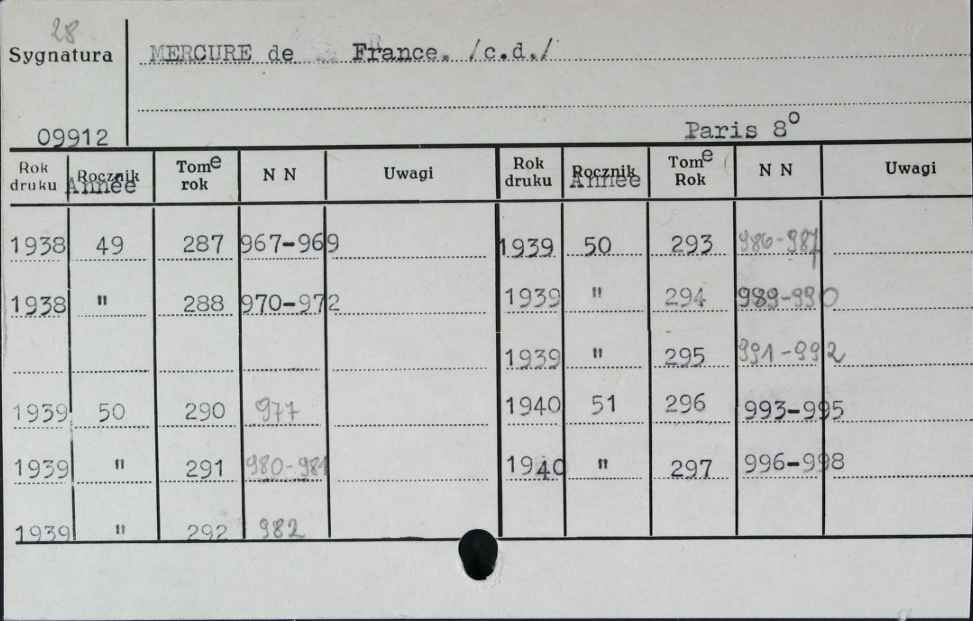 28
Sygnatura MERCURE de France. /c.d./
09912 Paris 8o
Rok druku Rocznik Année Tome rok N N Uwagi
1938 49 287 967-969
1938 " 288 970-972
1939 50 290 977
1939 " 291 980-981
1939 " 292 982
Rok druku Rocznik Année Tome Rok N N Uwagi
1939 50 293 986-987
1939 " 294 989-990
1939 " 295 991-992
1940 51 296 993-995
1940 " 297 996-998